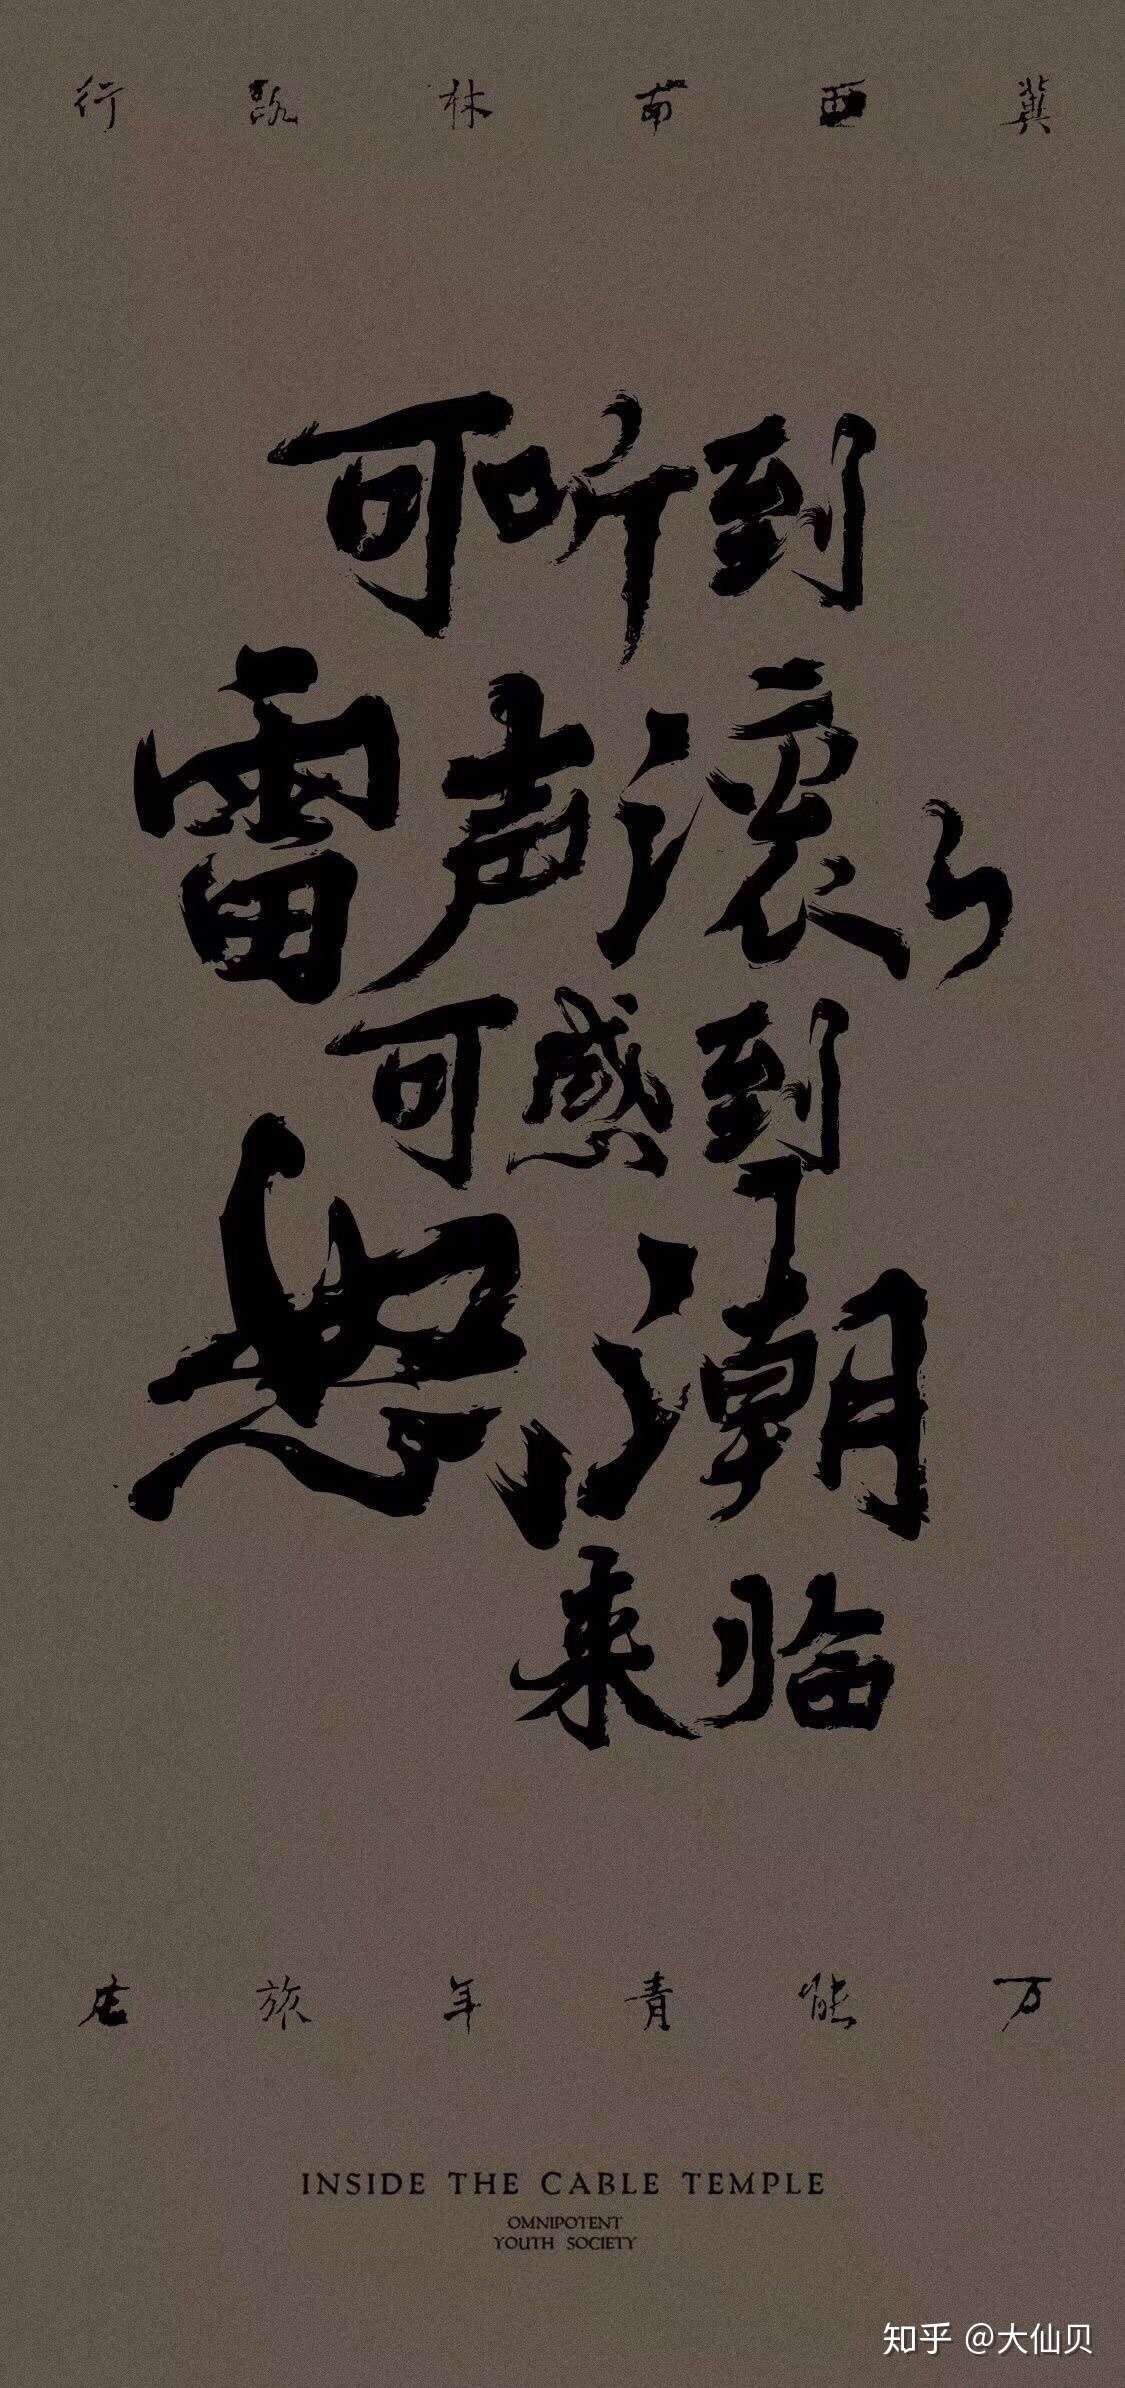 冀西南林路行
可听到
雷声滚々
可感到
怒潮
来临
万能青年旅店
INSIDE THE CABLE TEMPLE
OMNIPOTENT
YOUTH SOCIETY
知乎 @大仙贝